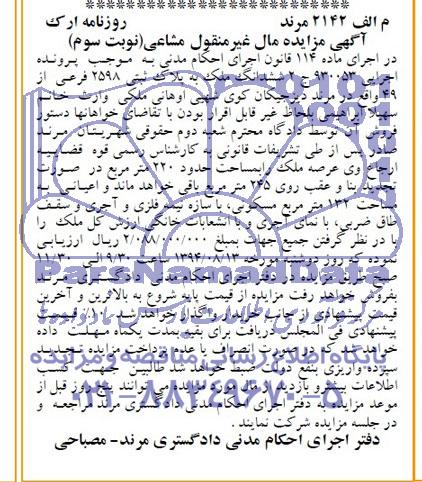 م الف ۲۱۴۲ مرند روزنامه ارک
آگهی مزایده مال غیرمنقول مشاعی(نوبت سوم)
در اجرای ماده ۱۱۴ قانون اجرای احکام مدنی به موجب پرونده
اجرایی ششدانگ ملک به پلاک ثبتی ۲۵۹۸ فرعی از
۴۹ واقع در مرند کوی ملکی وارث خانم
سهیلا ابراهیمی بلحاظ غیر قابل افراز بودن با تقاضای خواهانها دستور
فروش آن توسط دادگاه محترم شعبه دوم حقوقی شهرستان مرند
صادر پس از طی تشریفات قانونی به کارشناس رسمی قوه قضائیه
ارجاع وی عرصه ملک را بمساحت حدود ۲۲۰ متر مربع در صورت
تجدید بنا و عقب روی ۲۴۵ متر مربع باقی خواهد ماند و اعیانی به
مساحت ۱۳۲ متر مربع مسکونی با سازه نیمه فلزی و آجری و سقف
طاق ضربی با نمای آجری و با انشعابات خانگی ارزش کل ملک را
با در نظر گرفتن جمیع جهات بمبلغ ریال ارزیابی
نموده که روز دوشنبه مورخه ۱۳۹۴/۰۸/۱۳ ساعت ۹/۳۰ الی ۱۱/۳۰
صبح از طریق مزایده در دفتر اجرای احکام مدنی دادگستری مرند
بفروش خواهد رفت مزایده از قیمت پایه شروع به بالاترین و آخرین
قیمت پیشنهادی از جانب خریدار واگذار خواهد شد ۱۰٪ قیمت
پیشنهادی فی المجلس دریافت برای بقیه بمدت یکماه مهلت داده
خواهد شد که در صورت انصراف یا عدم پرداخت مزایده تجدید
سپرده واریزی بنفع دولت ضبط خواهد شد طالبین جهت کسب
اطلاعات بیشتر و بازدید از مال مورد مزایده می توانند پنج روز قبل از
موعد مزایده به دفتر اجرای احکام مدنی دادگستری مرند مراجعه و
در جلسه مزایده شرکت نمایند .
دفتر اجرای احکام مدنی دادگستری مرند- مصباحی
ParsNamadData
پایگاه اطلاع رسانی مناقصه و مزایده
۰۲۱-۸۸۳۴۹۶۷۰-۵